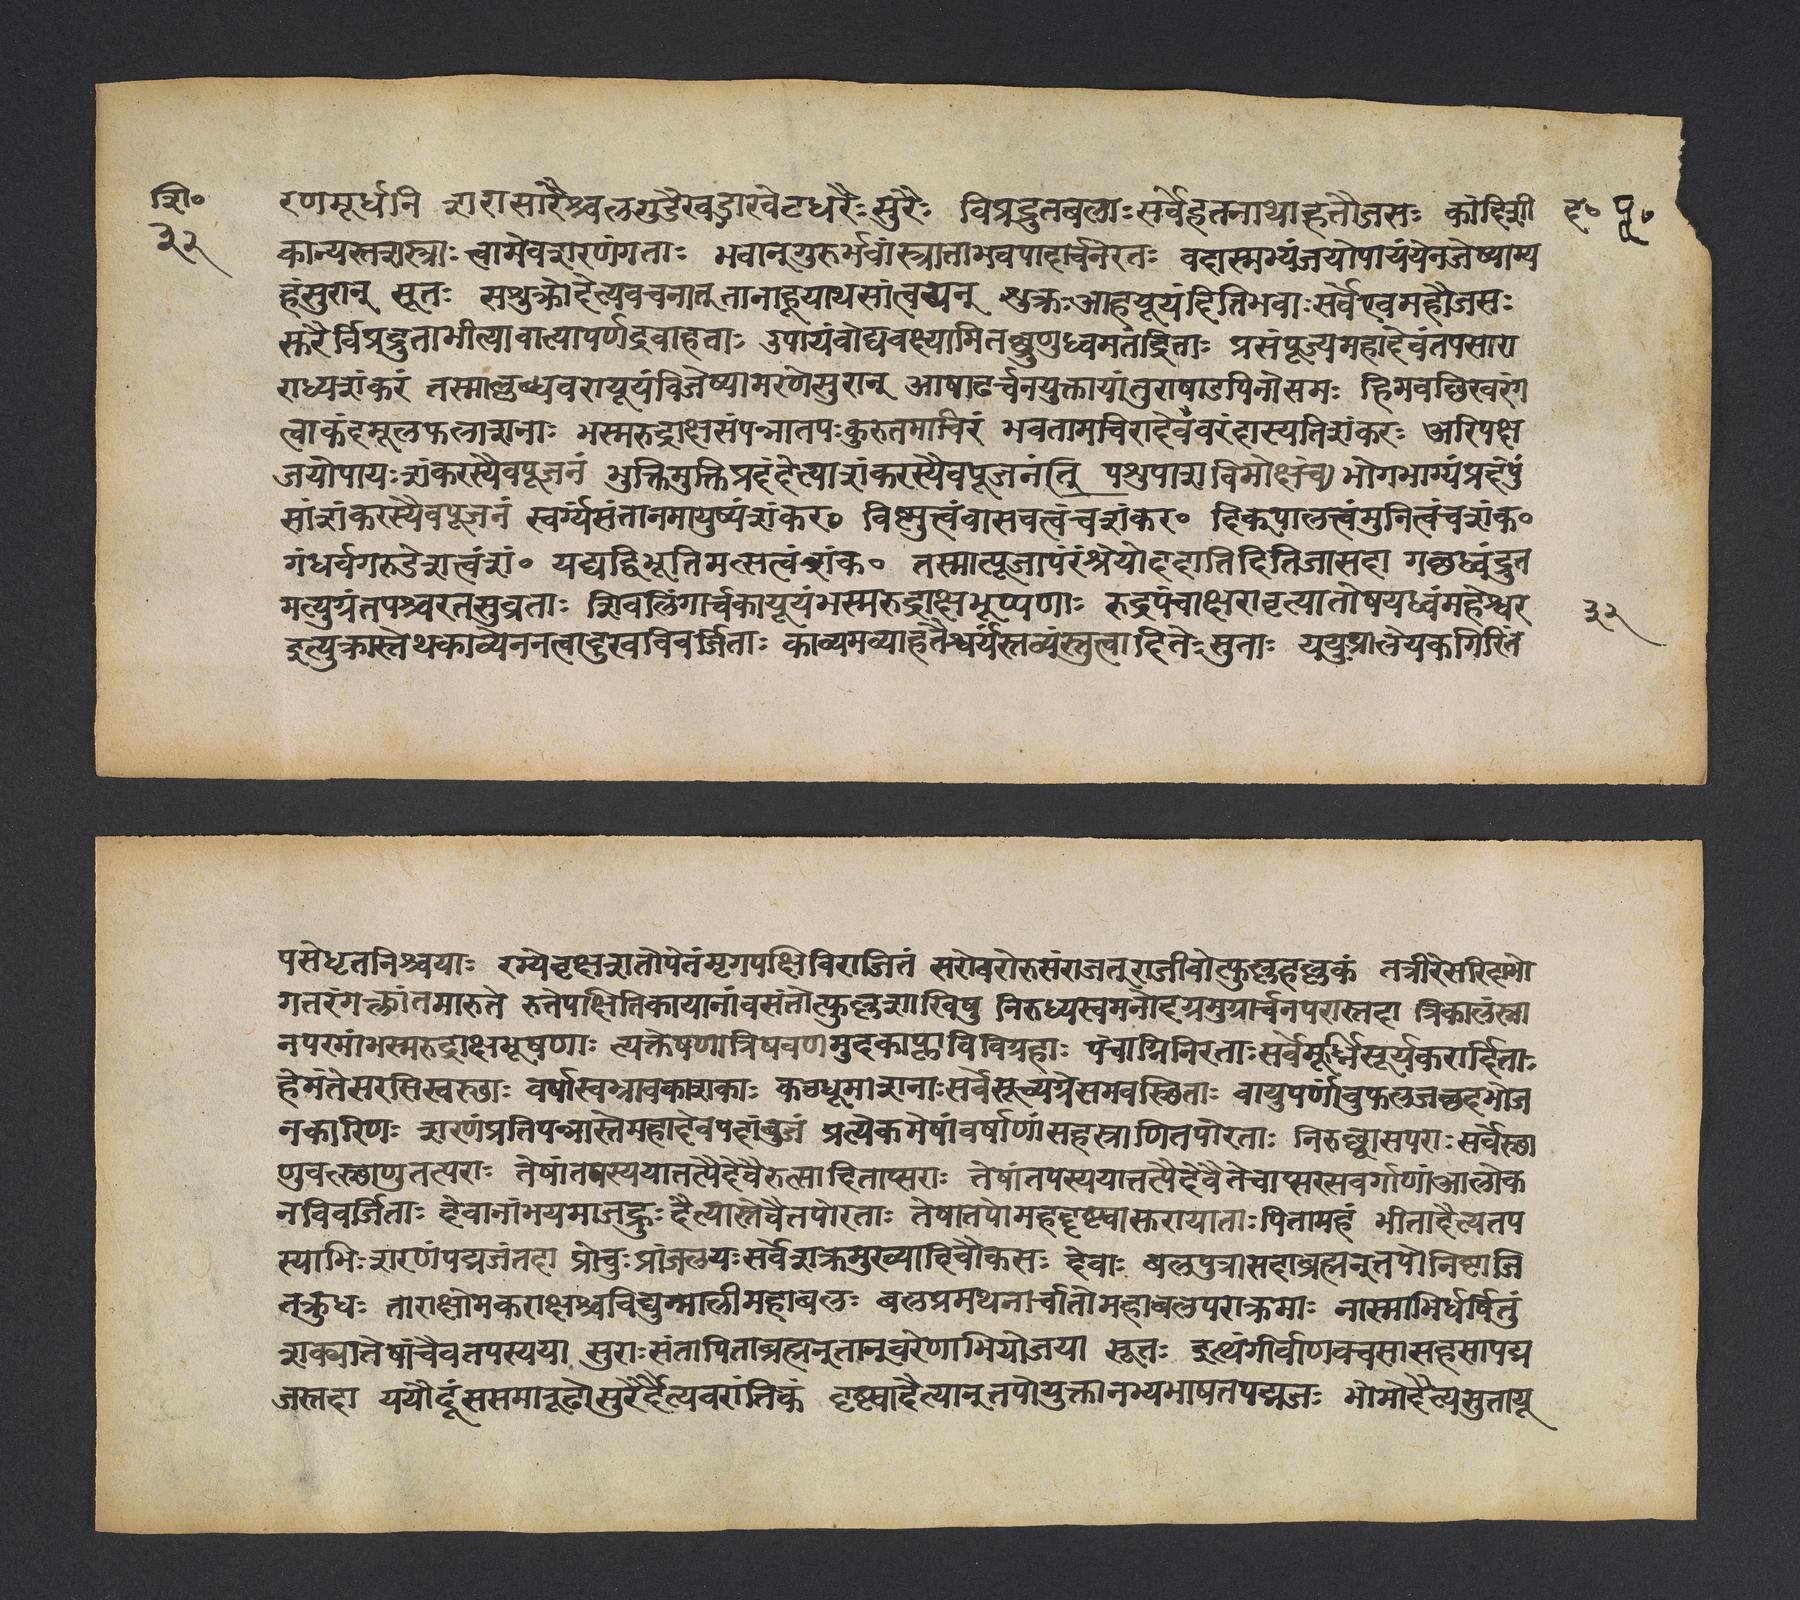 शि॰ रणमूर्धनि शरासारैश्चलगुडैखड्गखेटधरैःसुरैः विप्रद्रुतबलाःसर्वेहतनाथाहतौजसः कांदिशी ह॰ पू॰
३२ कान्यस्तशस्त्राःत्वामेवशरणंगताः भवान्गुरुर्भवांस्त्राताभवपादार्चनेरतः वदास्मभ्यंजयोपायंयेनजेष्याम्य
हंसुरान् सूतः सशुक्रोदैत्यवचनात्तानाहूयाथसांत्वयन् शुक्रःआहयूयंदितिभवाःसर्वेएवमहौजसः
स्मरैर्विप्रद्रुताभीत्यावात्यापर्णइवाहवाः उपायंवोद्यवक्ष्यामितच्छृणुध्वमतंद्रिताः प्रसंपूज्यमहादेवंतपसारा
राध्यशंकरं तस्माल्लब्धवरायूयंविजेष्यामरणेसुरान् आषाढर्चनयुक्तायांतुराषाडपिनोसमः हिमवच्छिखरंग
त्वाकंदमूलफलाशनाः भस्मरुद्राक्षसंपन्नातपःकुरुतमाचिरं भवतामचिराद्देवंवरंदास्यतिशंकरः अरिपक्ष
जयोपायःशंकरस्यैवपूजनं भुक्तिमुक्तिप्रदंदैत्याशंकरस्यैवपूजनंनि पशुपाशविमोक्षंच भोगभाग्यंप्रदंपुं
सांशंकरस्यैवपूजनं स्वर्ग्यसंतानमायुष्यंशंकर॰ विष्णुत्वंवासवत्वंचशंकर॰ दिक्पालत्वंमुनित्वंचशंक॰
गंधर्वगरुडेशत्वंशं॰ यद्यद्विभूतिमत्सत्वंशंक॰ तस्मात्पूजापरंश्रेयोददातिदितिजासदा गच्छध्वंद्रुत
मत्युग्रंतपश्चरतसुव्रताः शिवलिंगार्चकायूयंभस्मरुद्राक्षभूषणाः रुद्रपंचाक्षरावृत्यातोषयध्वंमहेश्वर ३२
इत्युक्तास्तेथकाव्येननत्वादुखविवर्जिताः काव्यमव्याहतैश्वर्यंस्तव्यंस्तुत्वादितेःसुताः ययुप्रालेयकगिरिंत
पसेधृतनिश्चयाः रम्येवृक्षशतोपेतंमृगपक्षिविराजितं सरोवरोरुसंराजत्राजीवोत्फुल्लहल्लकं तत्तीरेसरिद्दामो
गतरंगक्लांतमारुते रुतेपाक्षितिकायानांवसंतोत्फुल्लशाखिषु निरुध्यस्वमनोदग्रमुग्रार्चनपरास्तदा त्रिकालंस्ना
नपरमांभस्मरुद्राक्षभूषणाः त्यक्तेषणात्रिषवणमुदकाप्लाविविग्रहाः पंचाग्निनिरताःसर्वेमूर्ध्निसूर्यकरार्दिताः
हेमंतेसरसिस्वस्थाः वर्षास्वभ्रावकाशकाः कठधूमाशनाःसर्वेसूच्यग्रेसमवस्थिताः वायुपर्णांबुफलजच्छदभोज
नकारिणः शरणंप्रतिपन्नास्तेमहादेवपदांबुजं प्रत्येकमेषांवर्षाणांसहस्राणितपोरताः निरुच्छ्वासपराःसर्वेस्था
णुवत्स्थाणुतत्पराः तेषांतपस्ययातप्तैर्देवैरुत्सादिताप्सराः तेषांतपस्ययात्तप्तैर्देवैतेचाप्सरसवर्गाणांआलोक
नविवर्जिताः देवानांभयमाजह्रुःदैत्यास्तेवैतपोरताः तेषातपोमहद्दृष्ट्वास्मरायाताःपितामहं भीतादैत्यतप
स्याभिःशरणंपद्मजंतदा प्रोचुःप्रांजलयःसर्वेशक्रमुख्यादिवौकसः देवाः बलपुत्रासदाब्रह्मन्तपोनिष्टाजि
तक्रुधः ताराक्षोमकराक्षश्चविद्युन्मालीमहाबलः बलप्रमथनार्चातोमहाबलपराक्रमाः नास्माभिर्धर्षितुं
शक्यातेषांचैवतपस्यया सुराःसंतापिताब्रह्मन्तान्वरेणाभियोजया सूतः इत्थंगीर्वाणवचसासहसापद्म
जस्तदा ययौहंससमारूढोसुरैर्दैत्यवरांतिकं दृष्ट्वादैत्यान्तपोयुक्तानभ्यभाषतपद्मजः भोभोदैत्यसुतायू